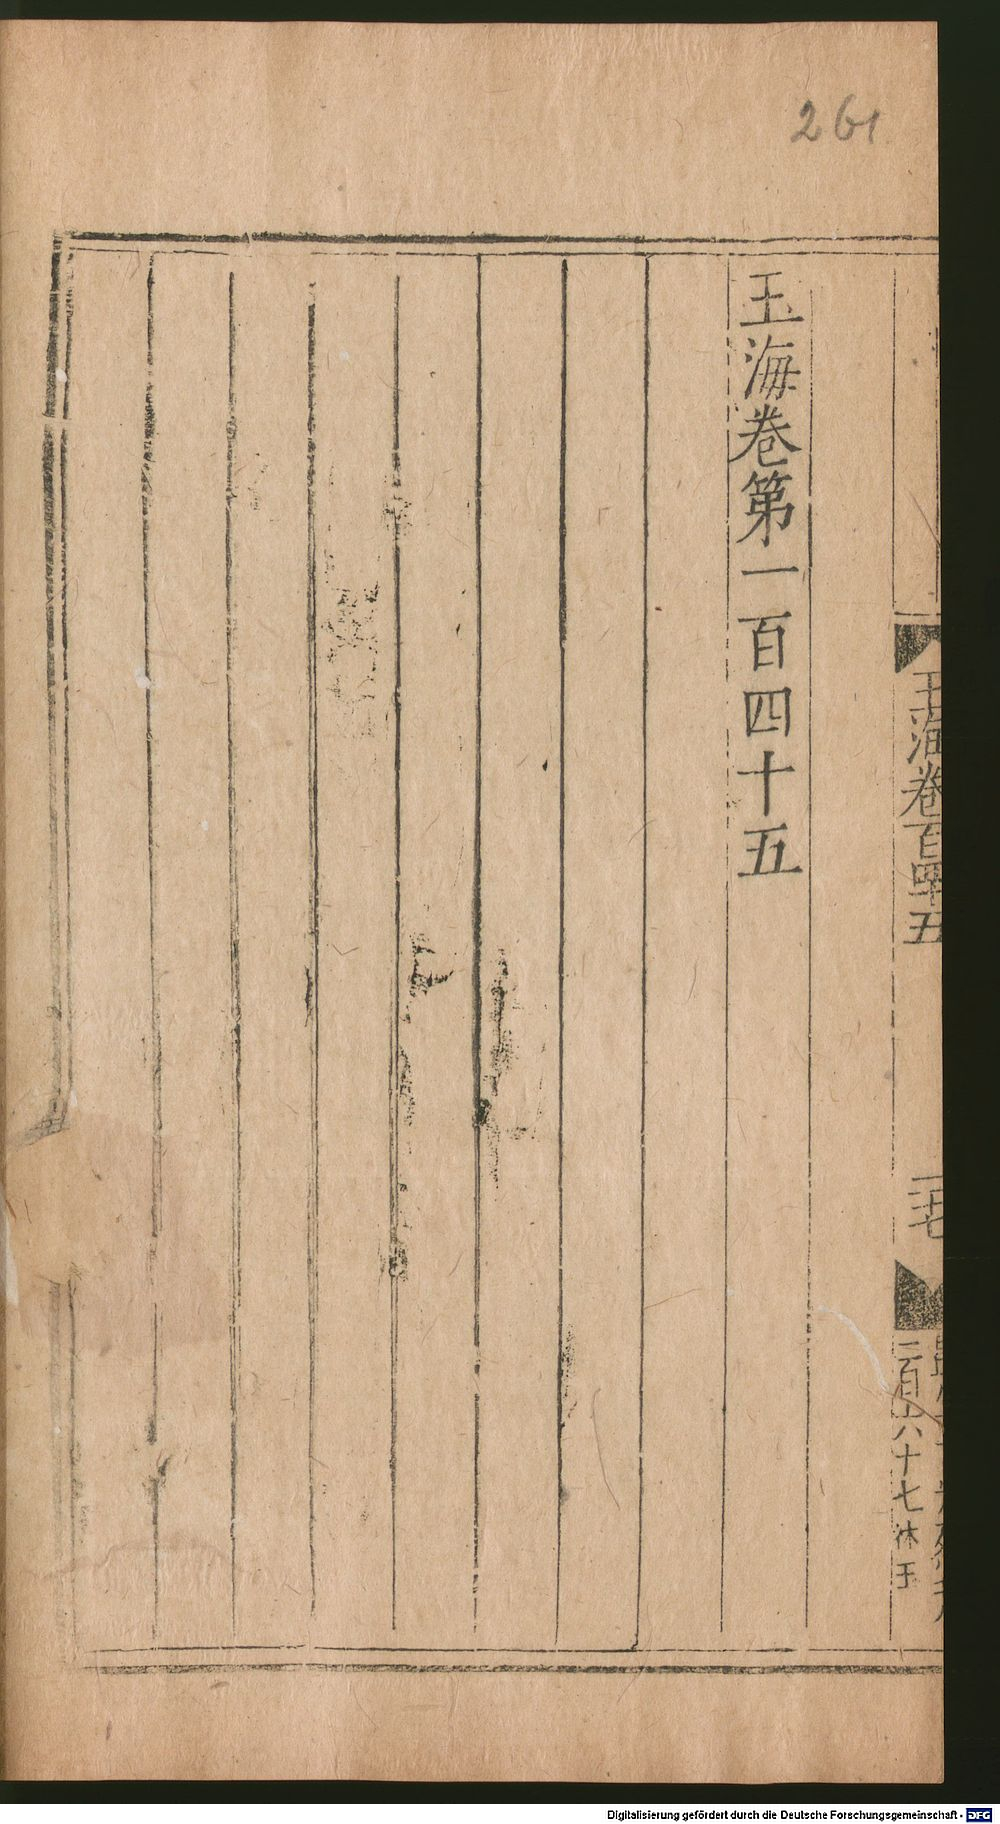 261
玉海卷第一百四十五
玉海卷百四十五
二十七
三百六十七 休玉
Digitalisierung gefördert durch die Deutsche Forschungsgemeinschaft - DFG